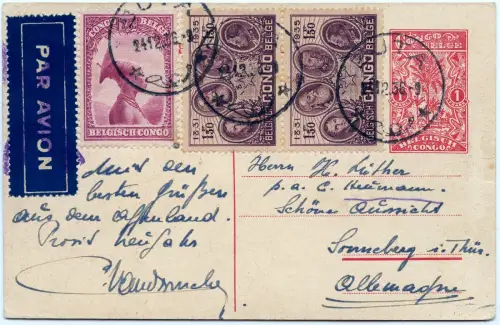 PAR AVION
CONGO BELGE
BELGISCH CONGO
1885 1935
1.50
CONGO BELGE
BELGISCH CONGO
1885 1935
1.50
CONGO BELGE
BELGISCH CONGO
CONGO
BELGE
1
BELGISCH
CONGO
24.12.36
Mit den
besten Grüßen
aus dem Affenland.
Prosit Neujahr
Herrn H. Lüther
p.a. C. Heumann.
Schöne Aussicht
Sonneberg i. Thür.
Allemagne